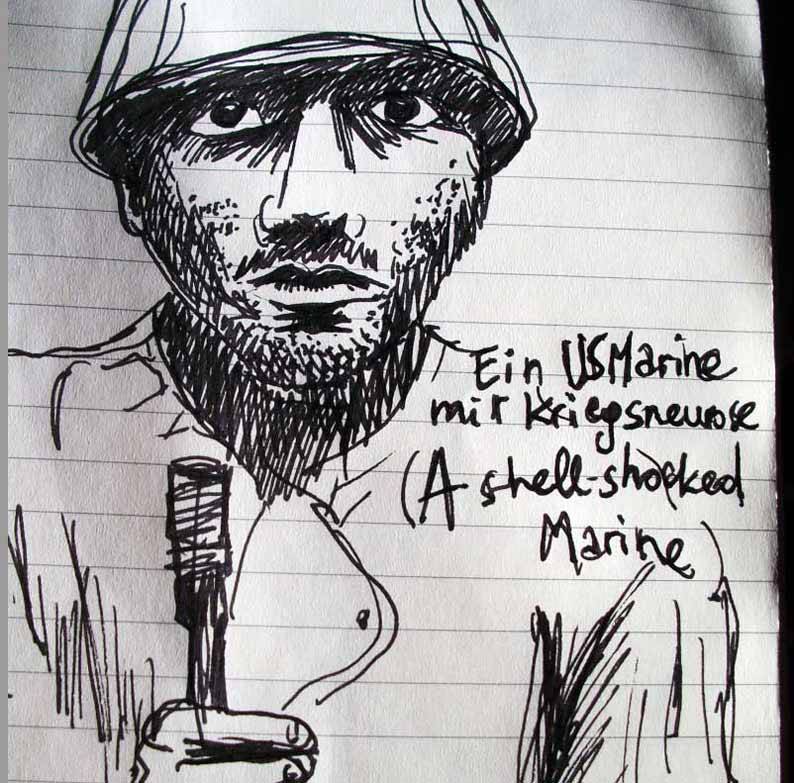 Ein US Marine
mit Kriegsneurose
(A shell-shocked
Marine